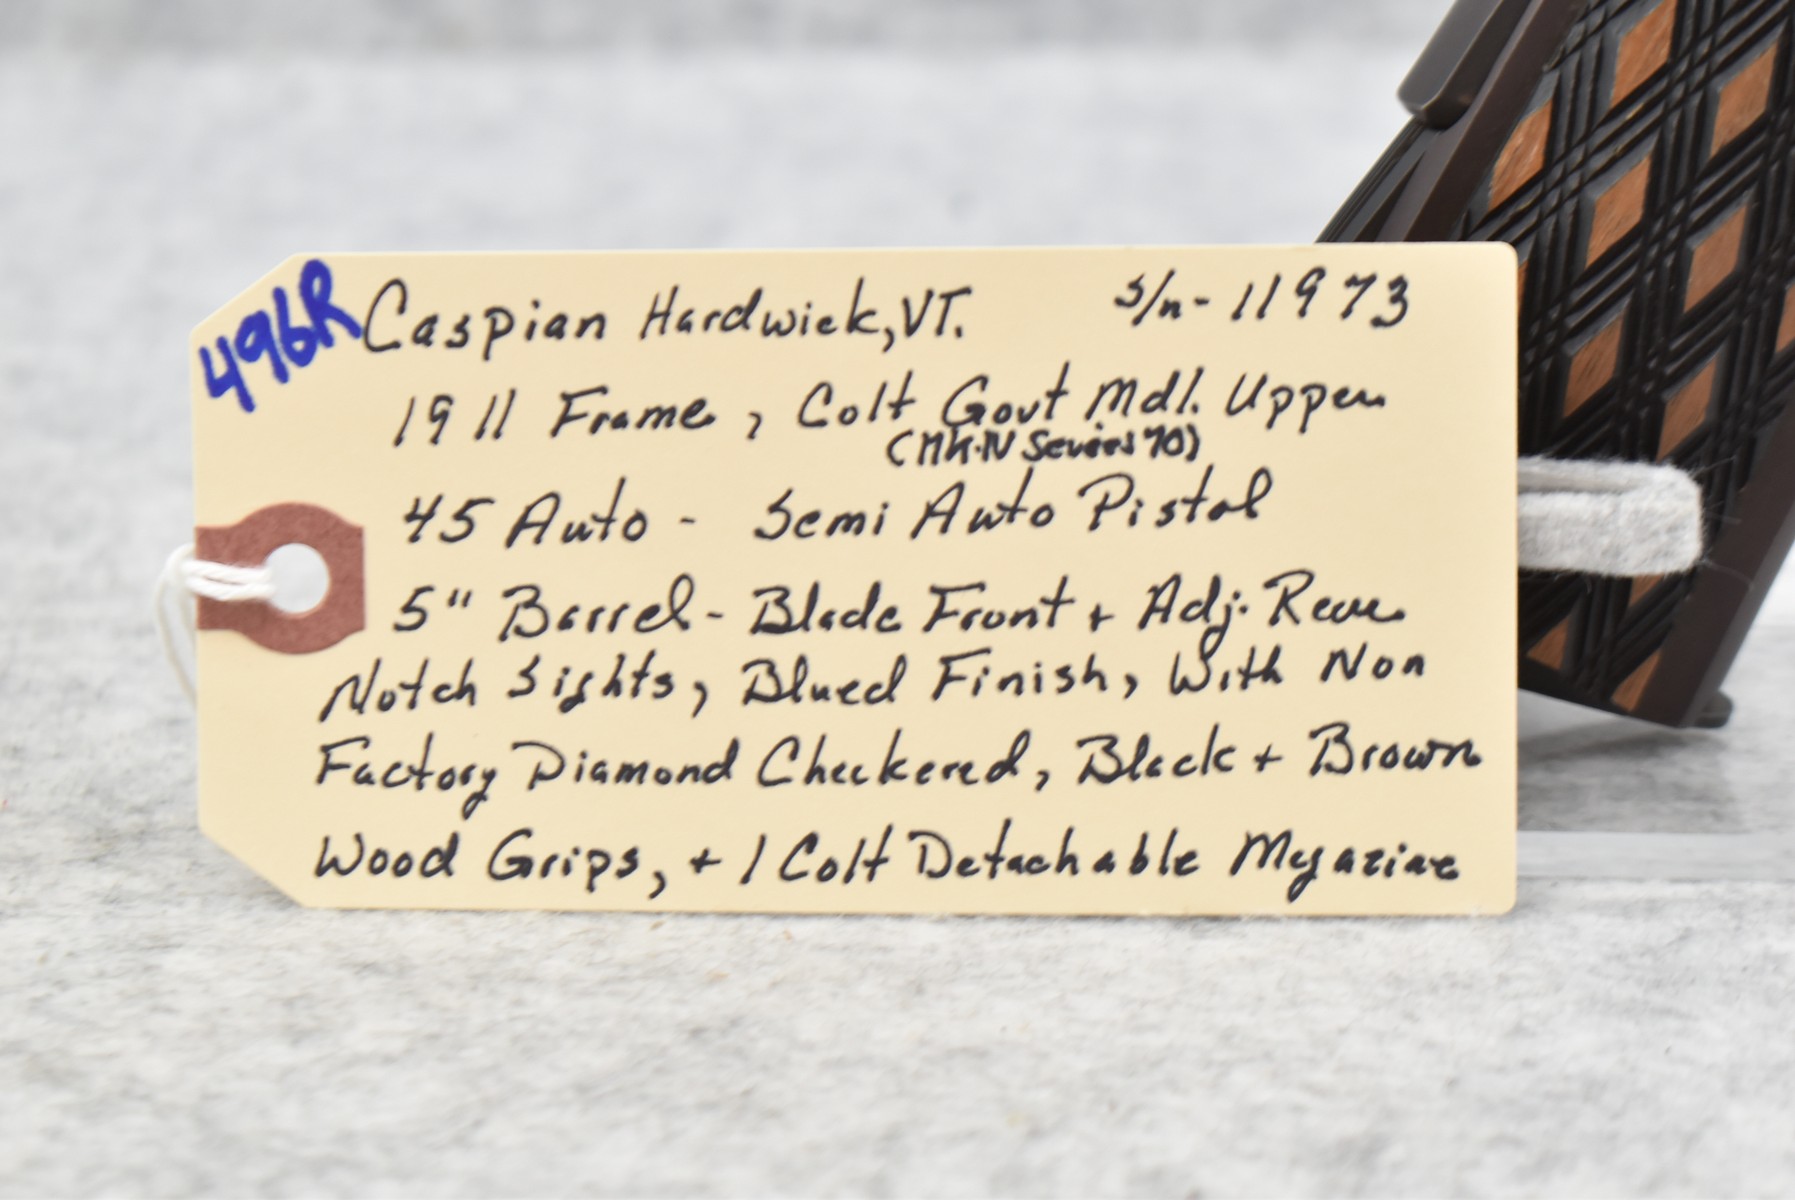 496R
Caspian Hardwick, VT. S/n- 11973
1911 Frame, Colt Govt Mdl. Upper
(MK·IV Series 70)
45 Auto - Semi Auto Pistol
5" Barrel - Blade Front + Adj. Rear
Notch Sights, Blued Finish, With Non
Factory Diamond Checkered, Black + Brown
Wood Grips, + 1 Colt Detachable Magazine